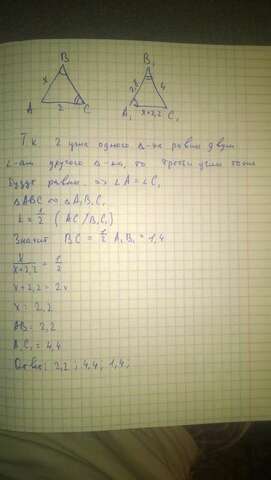 B
x
A
2
C
B₁
2,8
4
A₁
x+2,2
C₁
Тк 2 угла одного Δ-ка равны двум
∠-ам другого Δ-ка, то третьи углы тоже
будут равны. => ∠A = ∠C₁
ΔABC ∾ ΔA₁B₁C₁
k = 1/2 (AC/B₁C₁)
Значит BC = 1/2 A₁B₁ = 1,4
x/(x+2,2) = 1/2
x+2,2 = 2x
x = 2,2
AB = 2,2
A₁C₁ = 4,4
Ответ: 2,2 ; 4,4 ; 1,4 ;